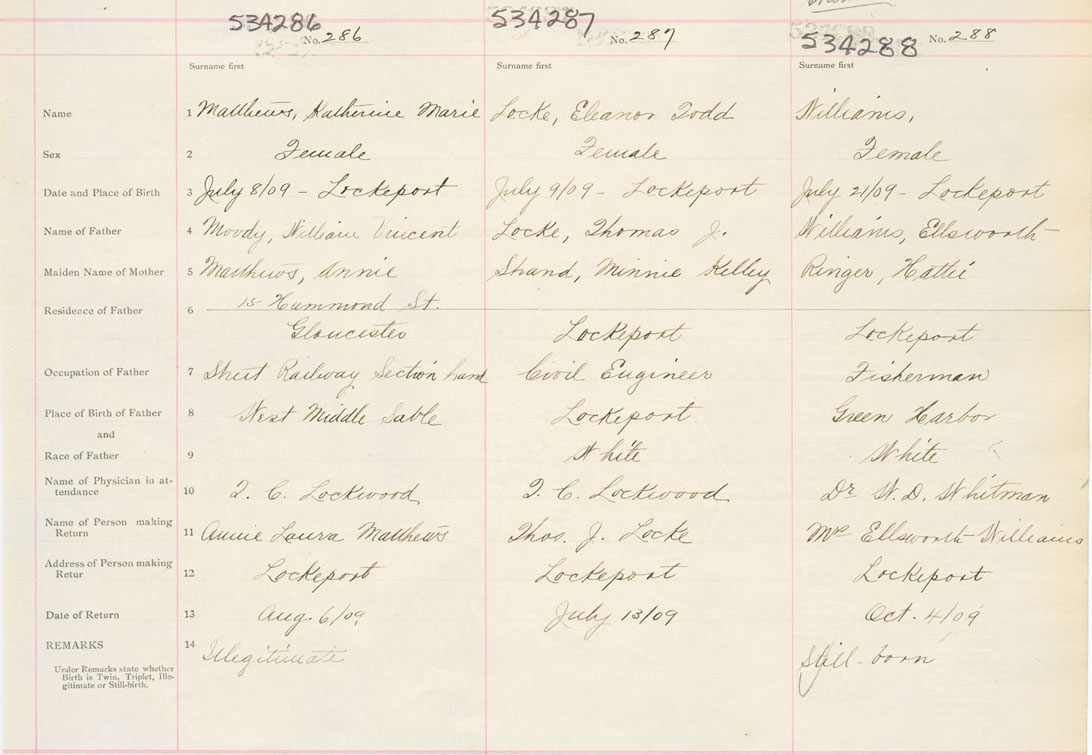 534286 534287 534288
No. 286 No. 287 No. 288
Surname first Surname first Surname first
Name 1 Matthews, Katherine Marie Locke, Eleanor Todd Williams,
Sex 2 Female Female Female
Date and Place of Birth 3 July 8/09 - Lockeport July 9/09 - Lockeport July 21/09 - Lockeport
Name of Father 4 Moody, William Vincent Locke, Thomas J. Williams, Ellsworth
Maiden Name of Mother 5 Matthews, Annie Strand, Minnie Kelley Ringer, Hattie
15 Hammond St.
Residence of Father 6
Gloucester Lockeport Lockeport
Occupation of Father 7 Street Railway Section hand Civil Engineer Fisherman
Place of Birth of Father 8 West Middle Sable Lockeport Green Harbor
and
Race of Father 9 White White
Name of Physician in at-
tendance 10 T. C. Lockwood T. C. Lockwood Dr W. D. Whitman
Name of Person making
Return 11 Annie Laura Matthews Thos. J. Locke Ellsworth Williams
Address of Person making
Retur 12 Lockeport Lockeport Lockeport
Date of Return 13 Aug. 6/09 July 13/09 Oct. 4/09
REMARKS 14 Illegitimate Still-born
Under Remarks state whether
Birth is Twin, Triplet, Ille-
gitimate or Still-birth.